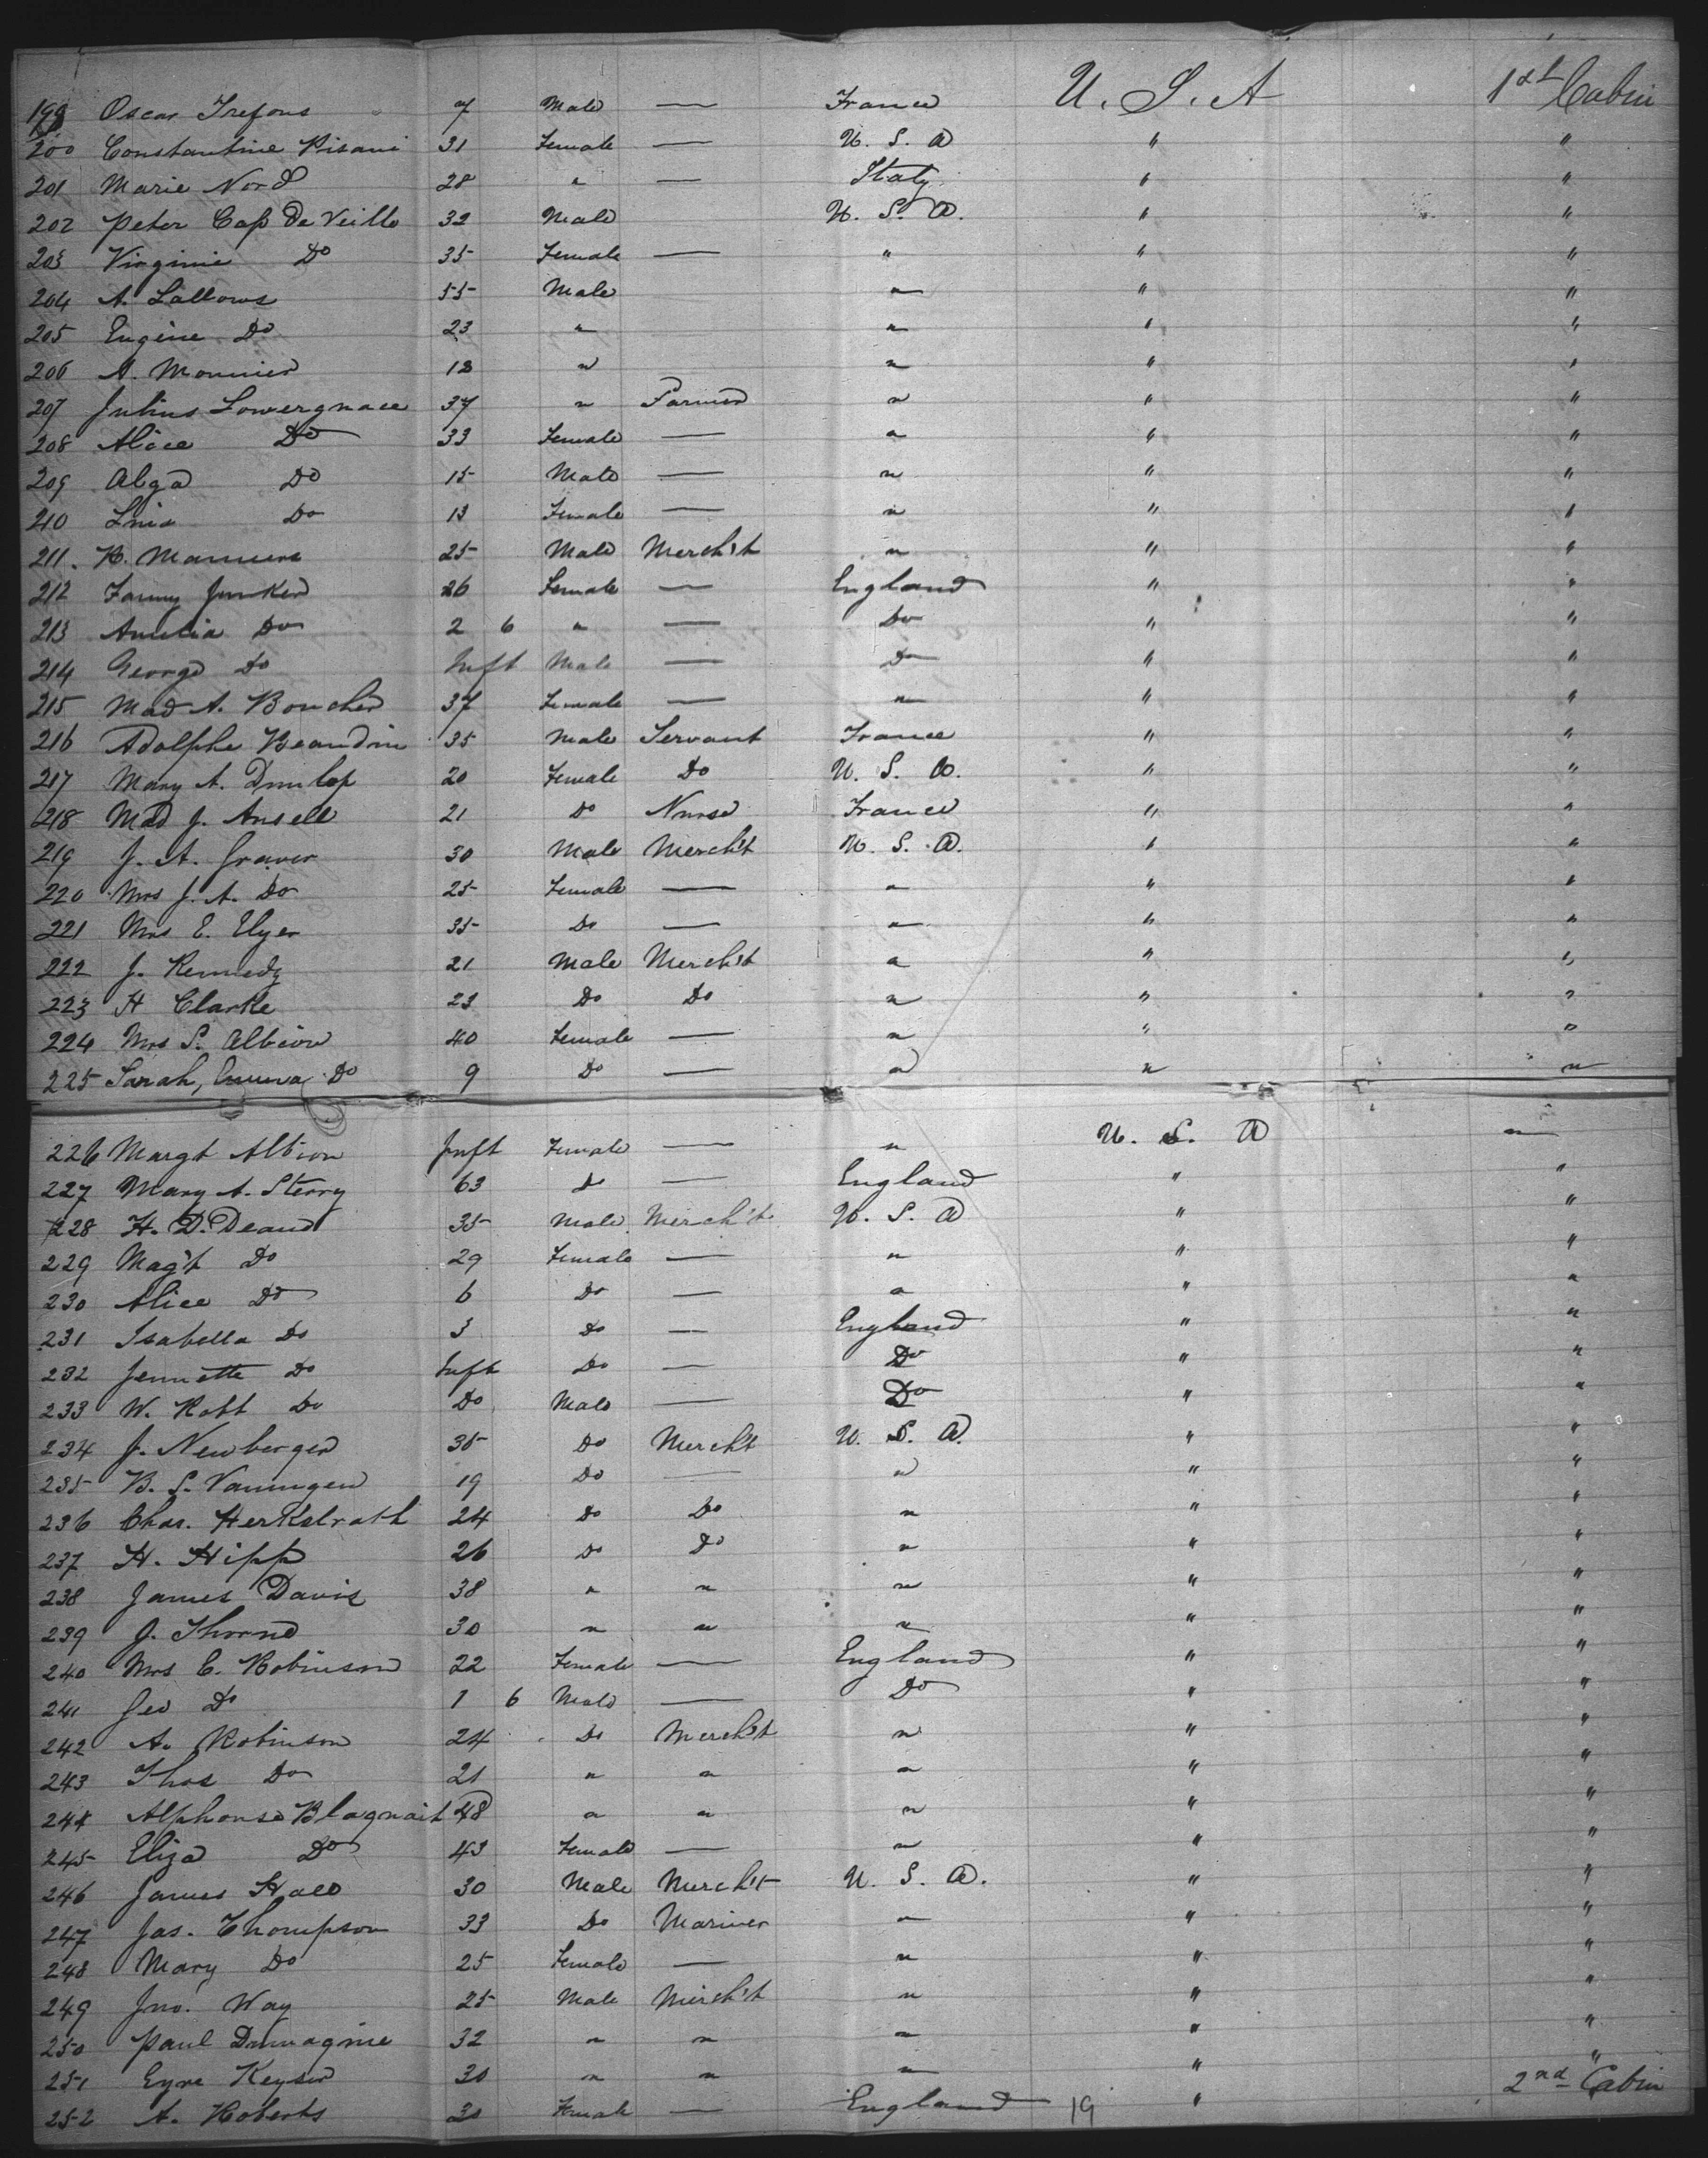 199 Oscar Trefous 7 Male — France U. S. A 1st Cabin
200 Constantine Pisani 31 Female — U. S. A " "
201 Marie Nord 28 " — Italy " "
202 Peter Cap De Veille 32 Male U. S. A. " "
203 Virginie Do 35 Female — " " "
204 A. Lallows 55 Male " " "
205 Eugène Do 23 " " " "
206 A. Monnier 18 " " " "
207 Julius Lowergnace 37 " Farmer " " "
208 Alice Do 33 Female — " " "
209 Alga Do 15 Male — " " "
210 Do 13 Female — " " "
211. 25 Male Merch't " " "
212 Fanny Junker 26 Female — England " "
213 Amelia Do 2 6 " — Do " "
214 George Do Inft Male — Do " "
215 Mad A. Boucher 37 Female — " " "
216 Adolphe Beaudin 35 Male Servant France " "
217 Mary A. Dunlop 20 Female Do U. S. A. " "
218 Mad J. Ansell 21 Do Nurse France " "
219 J. A. Graver 30 Male Merch't U. S. A. " "
220 Mrs J. A. Do 25 Female — " " "
221 Mrs E. Elyer 35 Do — " " "
222 J. Kennedy 21 Male Merch't " " "
223 H Clarke 23 Do Do " " "
224 Mrs S. Albion 40 Female — " " "
225 Sarah, Emma Do 9 Do — " " "
226 Margt Albion Inft Female — " U. S. A "
227 Mary A. Sterry 63 Do — England " "
228 H. D. Deane 35 Male Merch't U. S. A " "
229 Mag't Do 29 Female — " " "
230 Alice Do 6 Do — " " "
231 Isabella Do 3 Do — England " "
232 Jennette Do Inft Do — Do " "
233 W. Robt Do Do Male — Do " "
234 J. Newberger 35 Do Merch't U. S. A. " "
235 B. S. Vanungen 19 Do — " " "
236 Chas. Herkelrath 24 Do Do " " "
237 H. Hipp 26 Do Do " " "
238 James Davis 38 " " " " "
239 J. Thorne 30 " " " " "
240 Mrs C. Robinson 22 Female — England " "
241 Geo Do 1 6 Male — Do " "
242 A. Robinson 24 Do Merch't " " "
243 Thos Do 21 " " " " "
244 Alphonse Blagnait 48 " " " " "
245 Eliza Do 43 Female — " " "
246 James Hale 30 Male Merch't U. S. A. " "
247 Jas. Thompson 33 Do Mariner " " "
248 Mary Do 25 Female — " " "
249 Jno. Way 25 Male Merch't " " "
250 Paul 32 " " " " "
251 Eyre Keyser 30 " " " " "
252 A. Roberts 30 Female — England 19 " 2nd Cabin